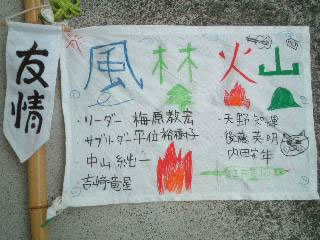 友情
風林火山
・リーダー 梅原教宏
サブリーダー 平位裕樹子
中山純二
吉崎竜星
・天野智運
後藤英明
内田